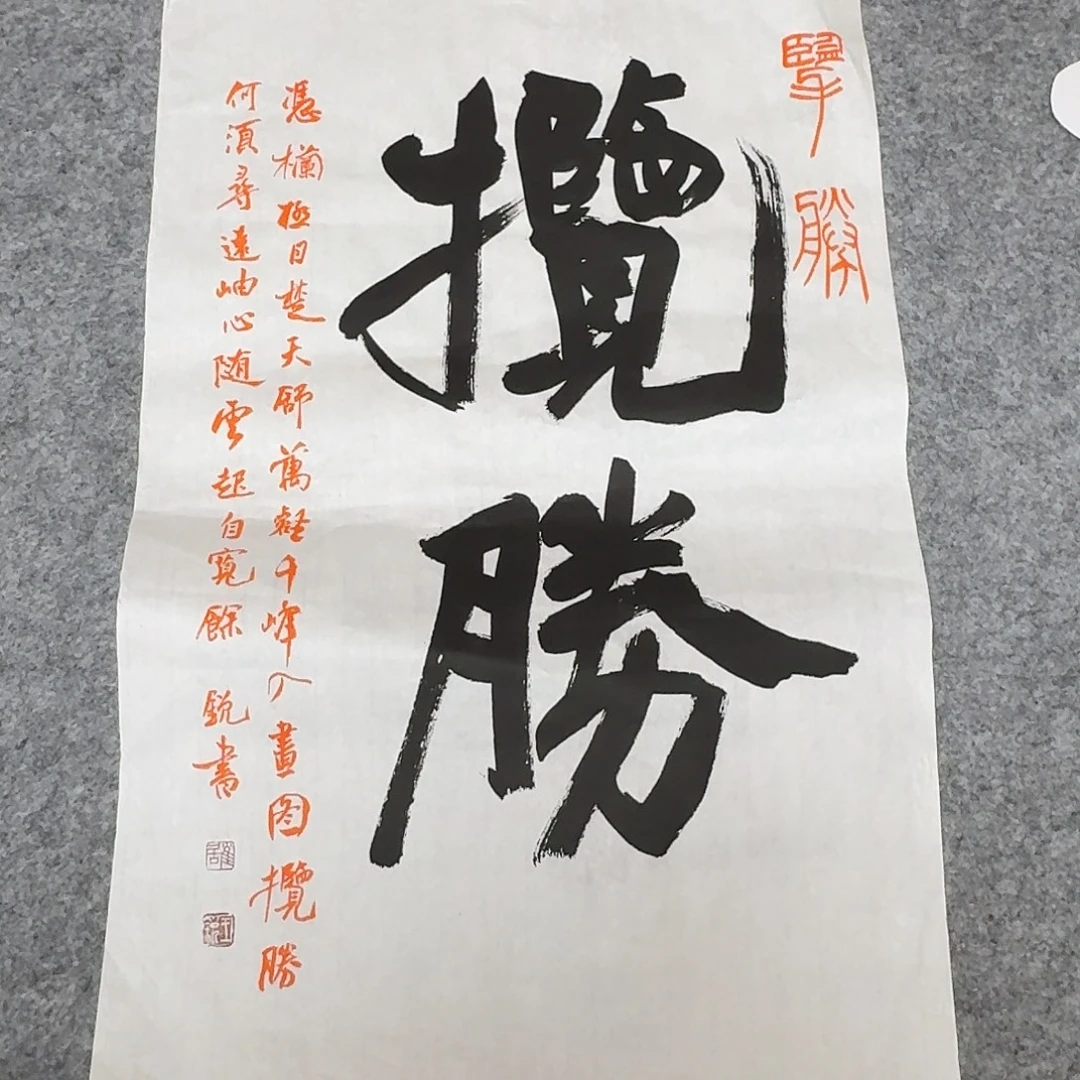 擥勝
攬勝
憑欄極目楚天舒萬壑千峰入畫图攬勝
何須尋遠岫心随雲起自寬餘 銳書